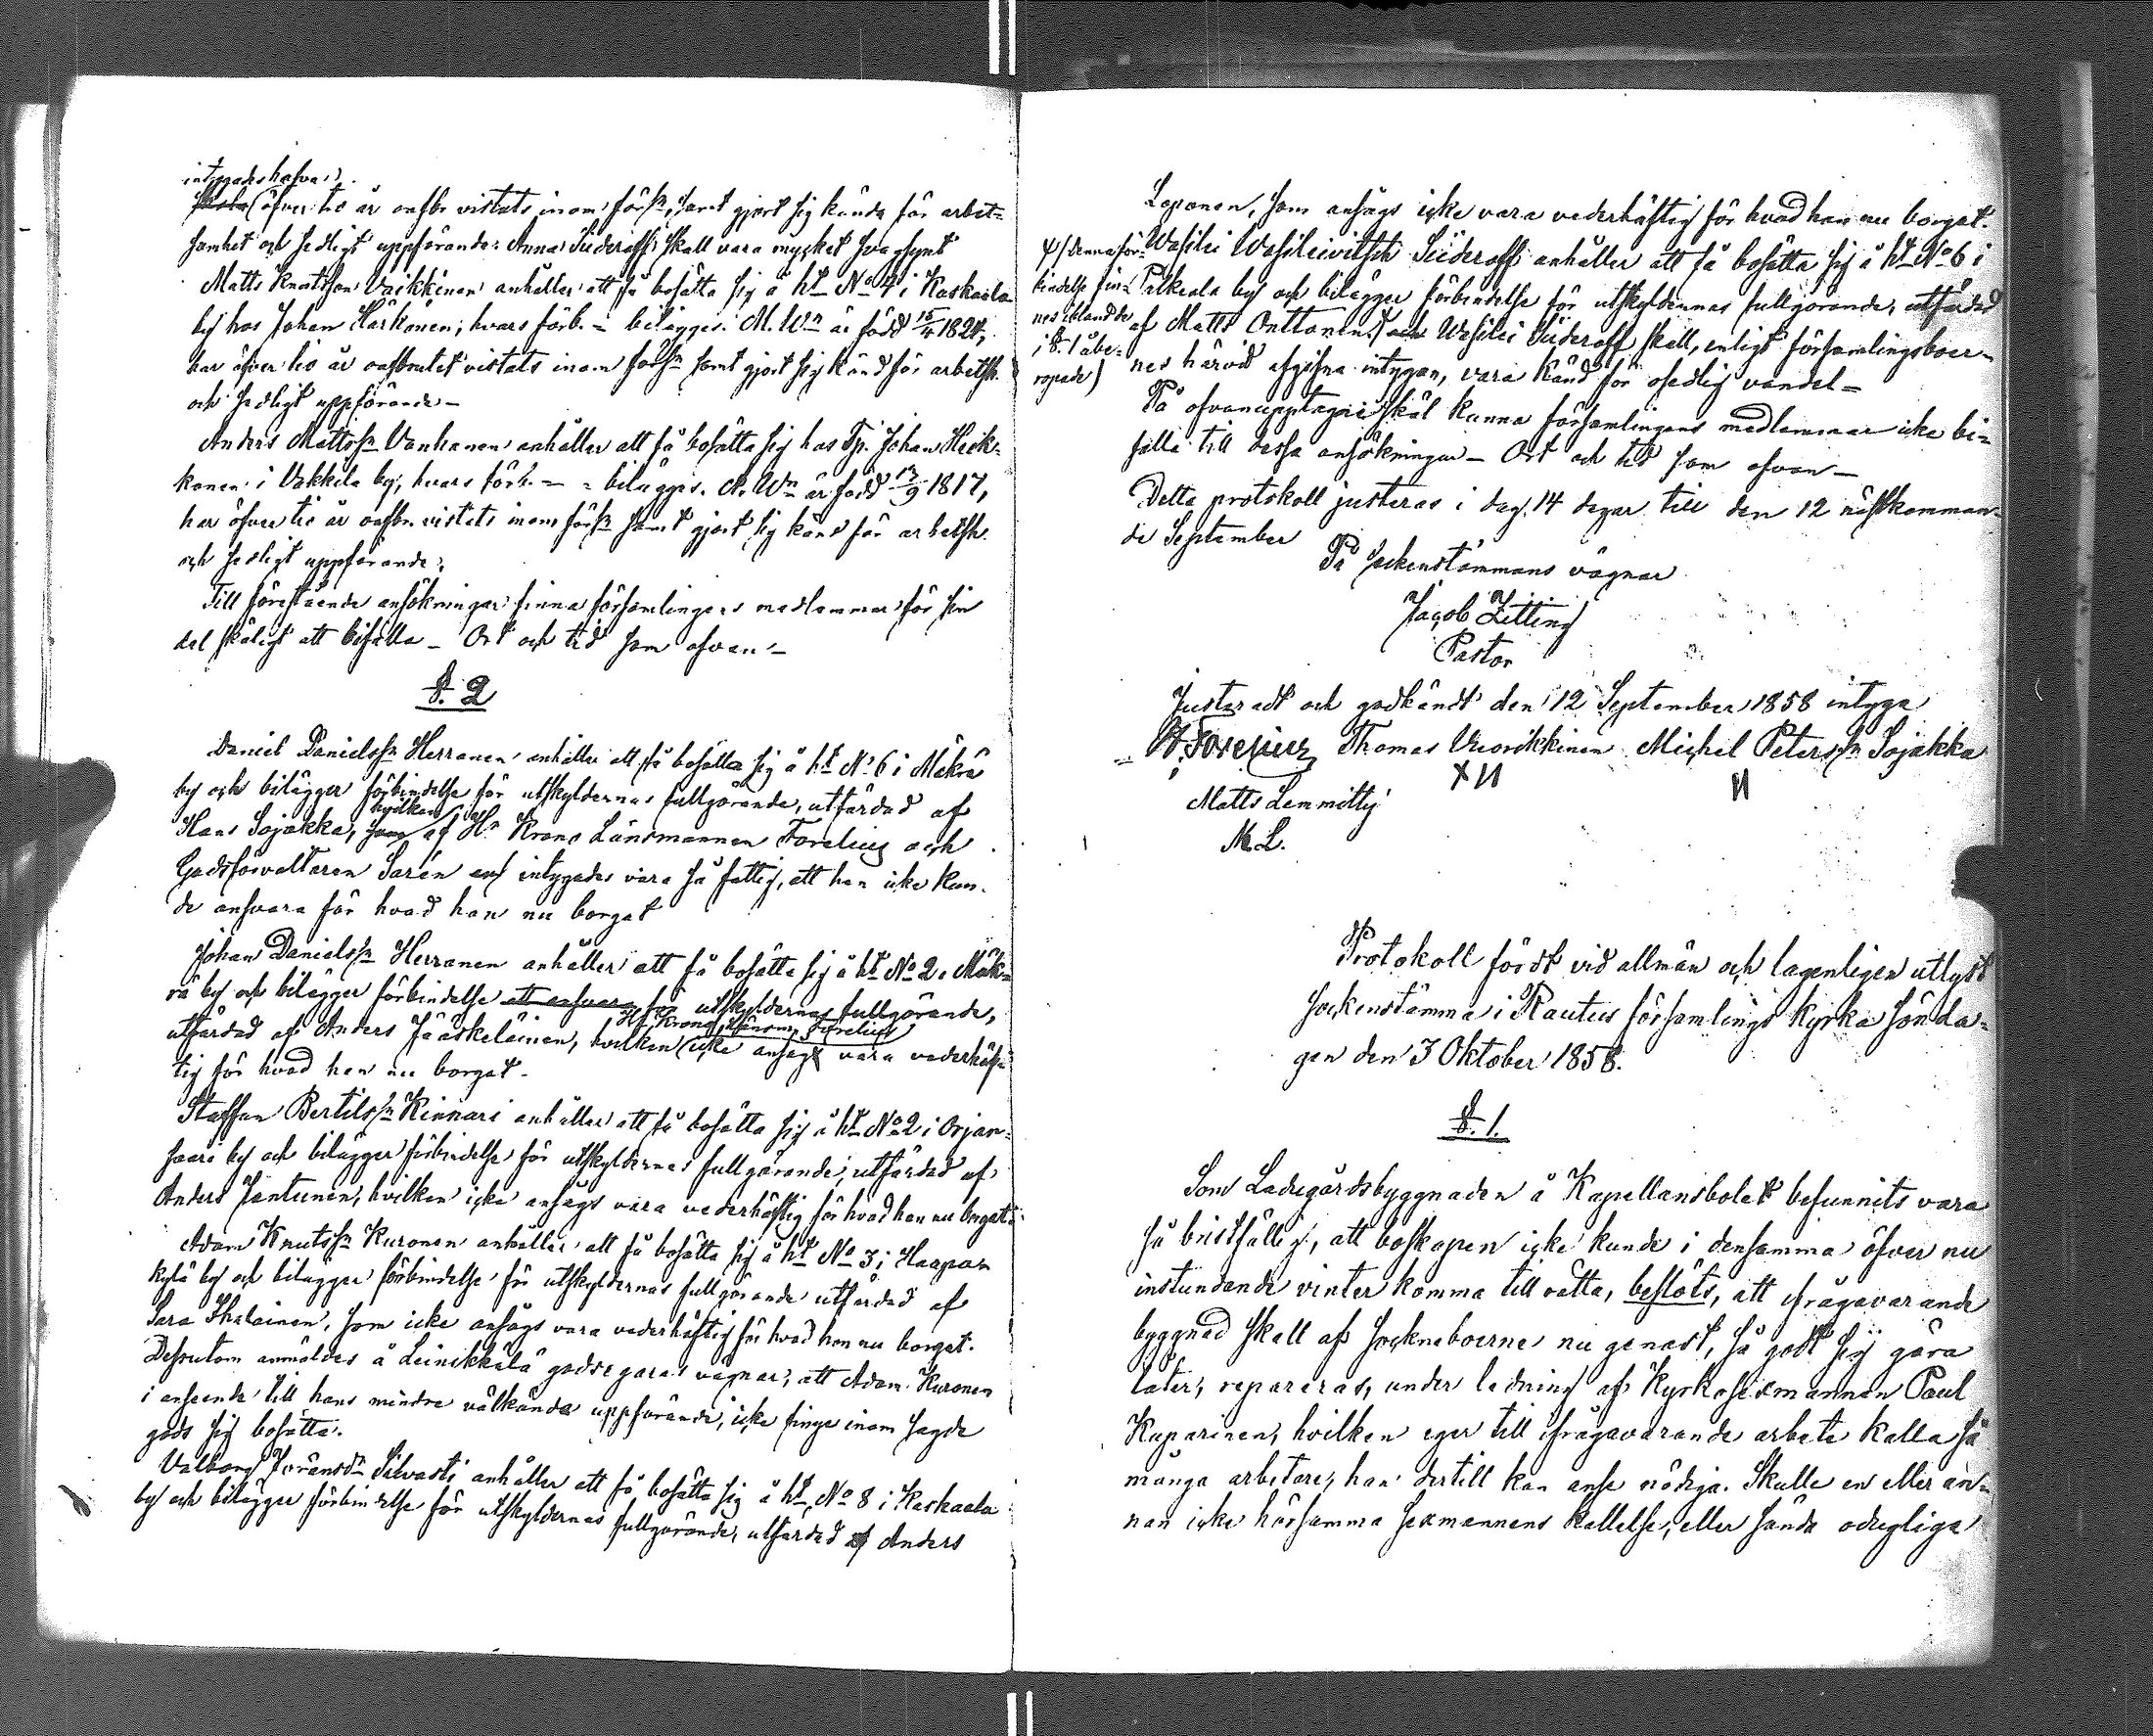 intygades hafva
skola öfver tio år oafbr. vistats inom förs:n, samt gjort sig kända för arbet-
samhet och sedligt uppförande. Anna Siideroff skall vara mycket svagsynt
Matts Knutsson Vaikkinen anhåller att få bosätta sig å ht No 4 i Kaskaala
by hos Johan Härkönen, hvars förb. = bilägges. M. Wn är född 15/4 1824,
har öfver tio år oafbrutet vistats inom förs:n samt gjort sig känd för arbetsh.
och sedligt uppförande –
Anders Mattss:n Vanhanen anhåller att få bosätta sig hos Tp. Johan Heik-
konen i Vakkila by, hvars förb. = bilägges. A. Wn är född 13/9 1817,
har öfver tio år oafbr. vistats inom förs:n samt gjort sig känd för arbetsh.
och sedligt uppförande;
Till förestående ansökningar finna församlingens medlemmar för sin
del skäligt att bifalla – Ort och tid som ofvan –
§. 2
Daniel Danielss:n Herranen anhåller att få bosätta sig å ht No 6 i Mäkrä
by och bilägger förbindelse för utskyldernas fullgörande, utfärdad af
hvilken
Hans Sojakka, som af Hr Krono Länsmannen Forelius och
Godsförvaltaren Sarén intygades vara så fattig, att han icke kun-
de ansvara för hvad han nu borgat
Johan Danielss:n Herranen anhåller att få bosätta sig å ht No 2 i Mäk-
rä by och bilägger förbindelse att ansvara för utskyldernas fullgörande,
Hr Krono Länsm. Forelius
utfärdad af Anders Jääskeläinen, hvilken icke ansågs vara vederhäf-
tig för hvad han nu borgat.
Staffan Bertilss:n Kinnari anhåller att få bosätta sig å ht No 2 i Orjan-
saari by och bilägger förbindelse för utskyldernas fullgörande, utfärdad af
Anders Jantunen, hvilken icke ansågs vara vederhäftig för hvad han nu borgat.
Adam Knutss:n Kuronen anhåller att få bosätta sig å ht No 3 i Haapa-
kylä by och bilägger förbindelse för utskyldernas fullgörande utfärdad af
Sara Ihalainen, som icke ansågs vara vederhäftig för hvad hon nu borgat.
Dessutom anmäldes å Leinikkälä godsegares vägnar, att Adam Kuronen
i anseende till hans mindre välkända uppförande, icke finge inom sagde
gods sig bosätta.
Valborg Jöransd:r Silvasti anhåller att få bosätta sig å ht No 8 i Kaskaala
by och bilägger förbindelse för utskyldernas fullgörande, utfärdad af Anders
Loponen, som ansågs icke vara vederhäftig för hvad han nu borgat.
Wasilei Wasileivitsch Siideroff anhåller att få bosätta sig å ht No 6 i
Palkeala by och bilägger förbindelse för utskyldernas fullgörande, utfärdad
af Matts Onttonen. och Wasilei Siideroff skall, enligt församlingsboer-
nes härvid afgifna intygan, vara känd för osedlig vandel –
/denna för-
bindelse fin-
nes ibland de
i §. 1 åbe-
ropade)
På ofvanupptagne skäl kunna församlingens medlemmar icke bi-
falla till dessa ansökningar – Ort och tid som ofvan –
Detta protokoll justeras i dag 14 dagar till den 12 nästkomman-
de September
På sockenstämmans vägnar
Jacob Zitting
Pastor
Justeradt och godkändt den 12 September 1858 intyga
Forelius Thomas Vuorikkinen Michel Peterss:n Sojakka
Matts Lemmitty
M. L.
Protokoll fördt vid allmän och lagenligen utlyst
sockenstämma i Rautus församlings kyrka sönda-
gen den 3 Oktober 1858.
§. 1.
Som Ladugårdsbyggnaden å Kapellansbolet befunnits vara
så bristfällig, att boskapen icke kunde i densamma öfver nu
instundande vinter komma till rätta, beslöts, att ifrågavarande
byggnad skall af socknaboerne nu genast, så godt sig göra
låter, repareras, under ledning af Kyrkosexmannen Paul
Kuparinen, hvilken eger till ifrågavarande arbete kalla så
många arbetare, han dertill kan anse nödiga. Skulle en eller an-
nan icke hörsamma sexmannens kallelse, eller sända odugliga